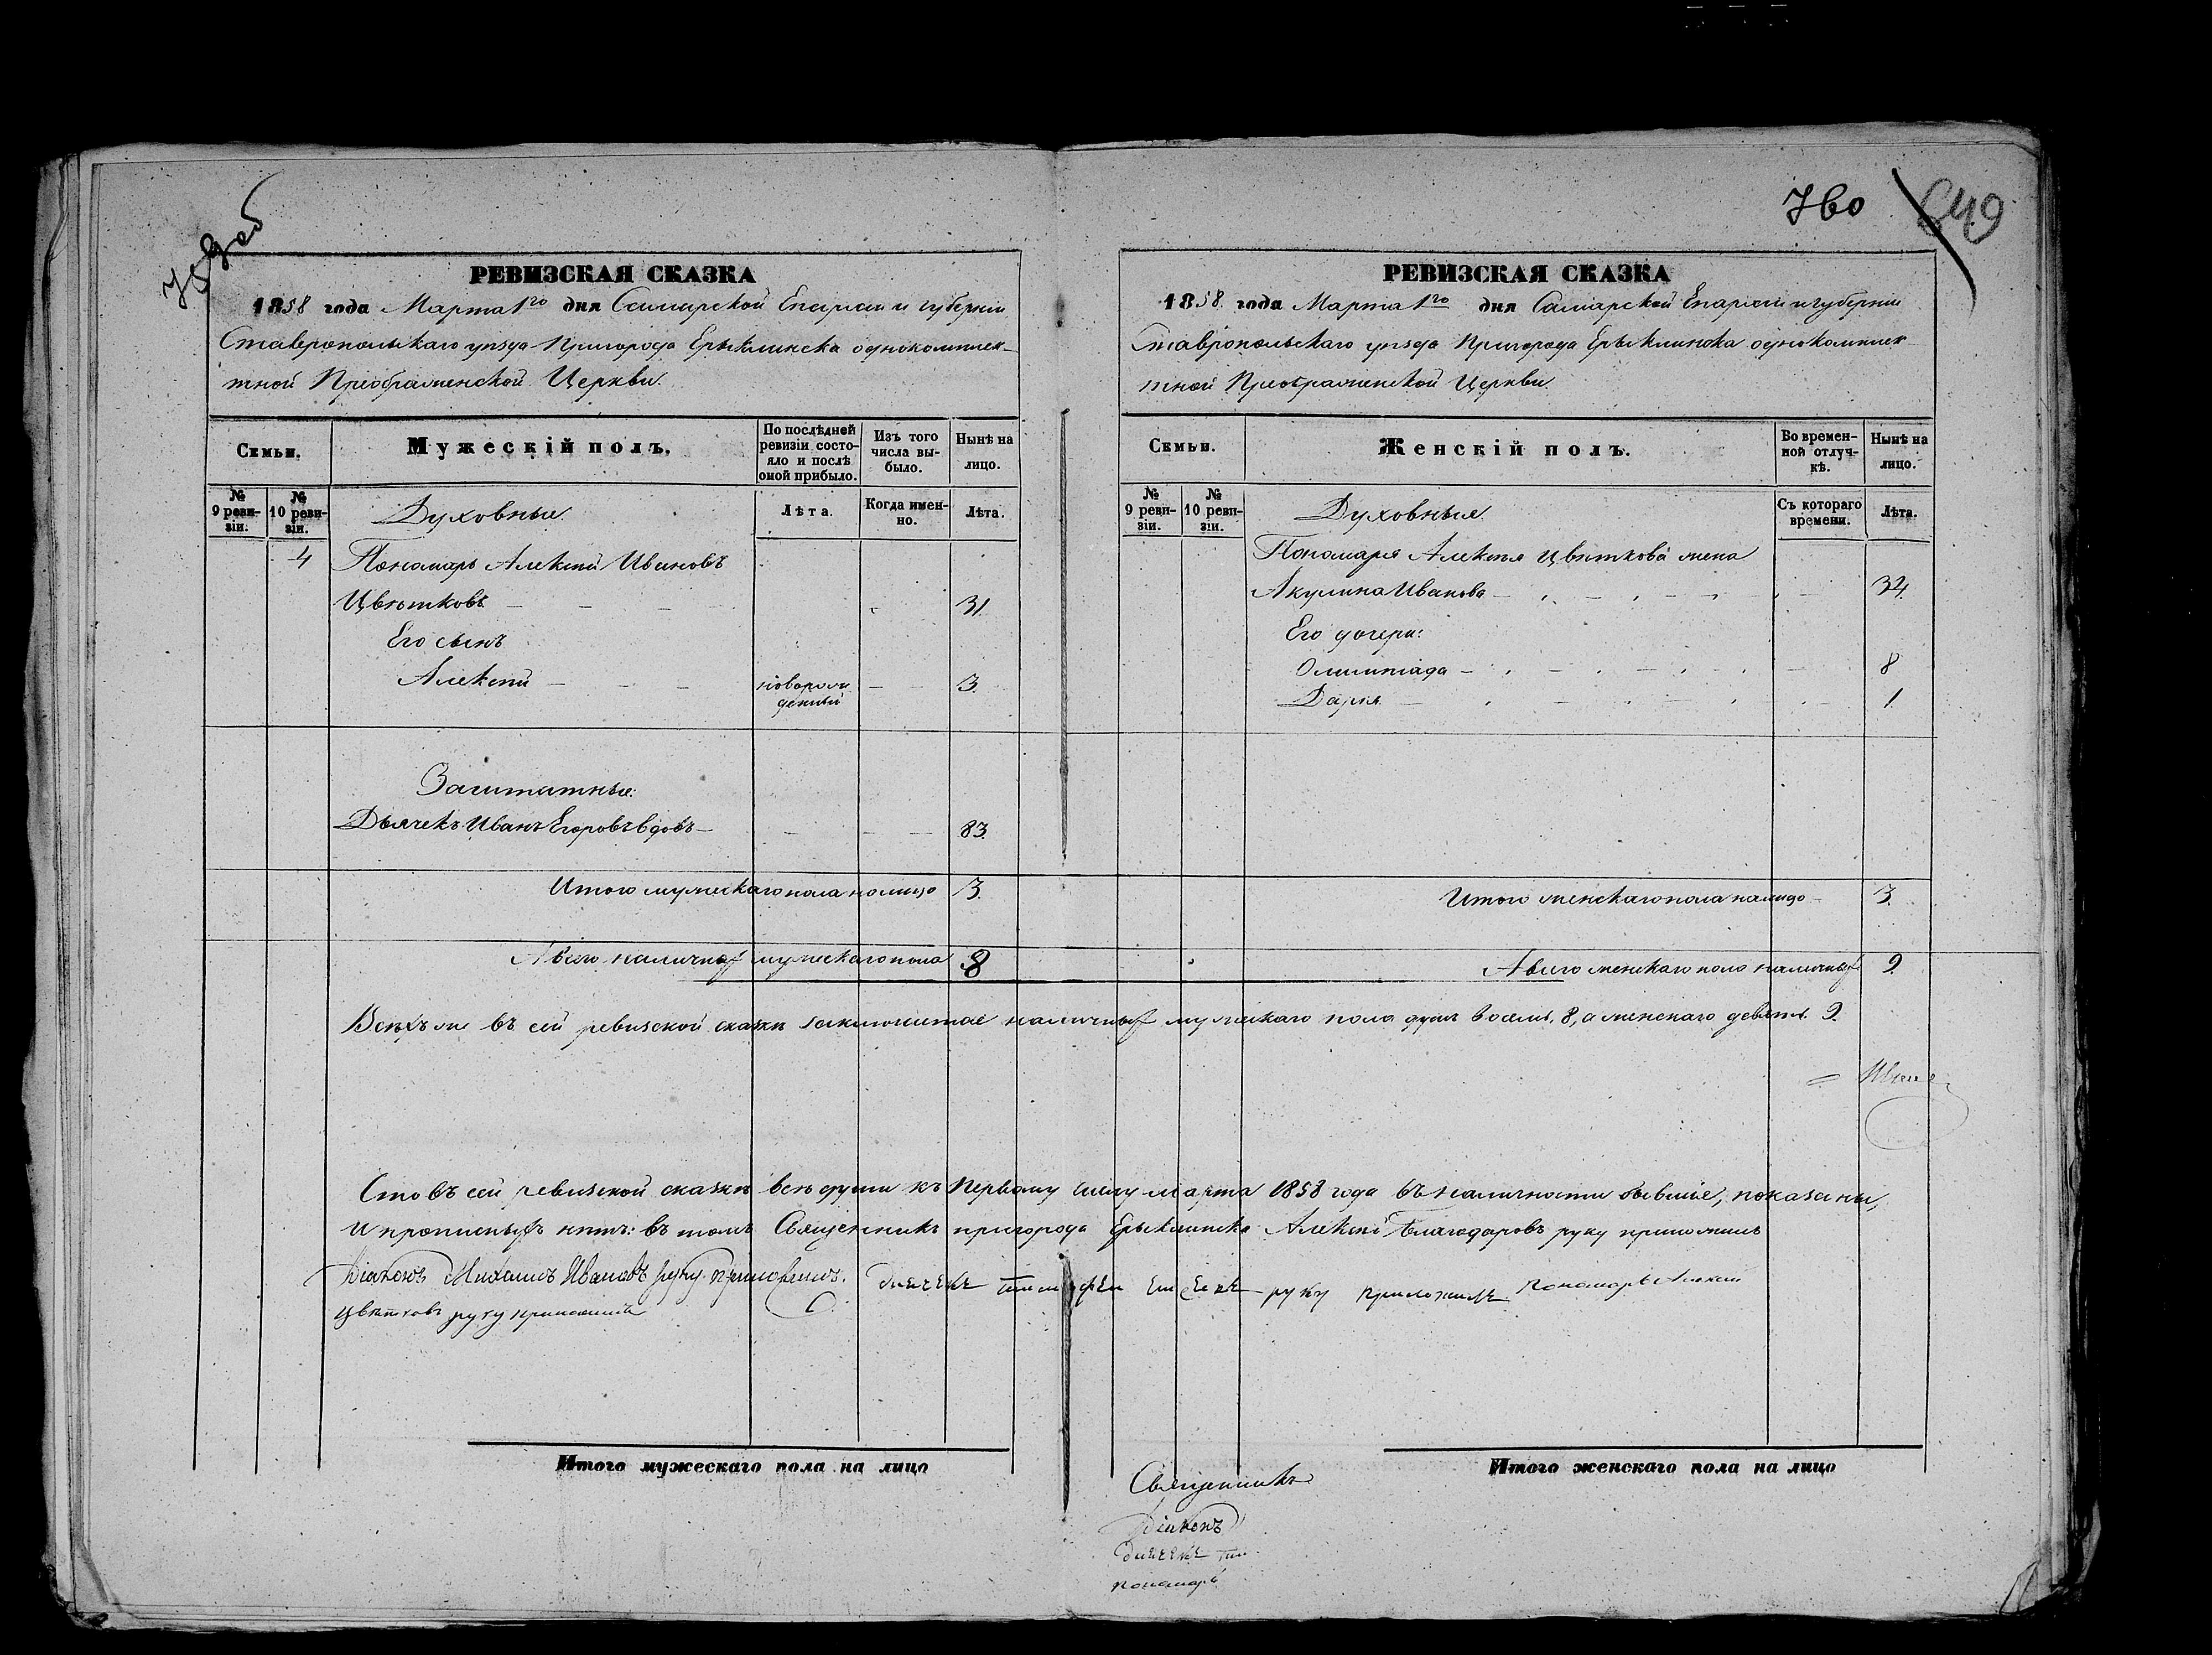 760
649
РЕВИЗСКАЯ СКАЗКА
1858 года Марта 1го дня Самарской Епархіи и губерніи
Ставропольскаго уѣзда Пригорода Ерыклинска однокомплек-
тной Преображенской Церкви.
Семьи.
Мужескій полъ.
По послѣдней ревизіи состо-яло и послѣ оной прибыло.
Изъ того числа вы-было.
Нынѣ на лицо.
№ 9 реви-зіи.
№ 10 реви-зіи.
Духовные.
Лѣта.
Когда имен-но.
Лѣта.
4 Пономарь Алексѣй Ивановъ
Цвѣтковъ — — — 31.
Его сынъ
Алексѣй — — — новорож денный — 3.
Заштатные:
Дьячекъ Иванъ Егоровъ вдовъ — — — — 83.
Итого мужескаго пола налицо 3.
А всего наличныхъ мужескаго пола 8
РЕВИЗСКАЯ СКАЗКА
1858 года Марта 1го дня Самарской Епархіи и губерніи
Ставропольскаго уѣзда Пригорода Ерыклинска однокомплек
тной Преображенской Церкви.
Семьи.
Женскій полъ.
Во времен-ной отлуч-кѣ.
Нынѣ на лицо.
№ 9 реви-зіи.
№ 10 реви-зіи.
Духовныя.
Съ котораго времени.
Лѣта.
Пономаря Алексѣя Цвѣткова жена
Акулина Иванова — 32.
Его дочери:
Олимпіада — 8
Дарья — 1.
Итого женскаго пола налицо 3.
А всего женскаго пола наличныхъ 9.
Всѣхъ же въ сей ревизской сказкѣ заключается наличныхъ мужескаго пола душъ восемь, 8, а женскаго девять. 9.
Что въ сей ревизской сказкѣ всѣ души къ Первому числу марта 1858 года въ наличности бывшіе, показаны,
и прописныхъ нѣтъ: въ томъ Священникъ пригорода Ерыклинска Алексѣй Благодаровъ руку приложилъ
Діаконъ Михаилъ Ивановъ руку приложилъ. дьячекъ тимофеи руку приложилъ Пономарь Алексѣй
Цвѣтковъ руку приложилъ
Итого мужескаго пола на лицо
Итого женскаго пола на лицо
Священникъ
Діаконъ
дьячекъ ти
пономарь